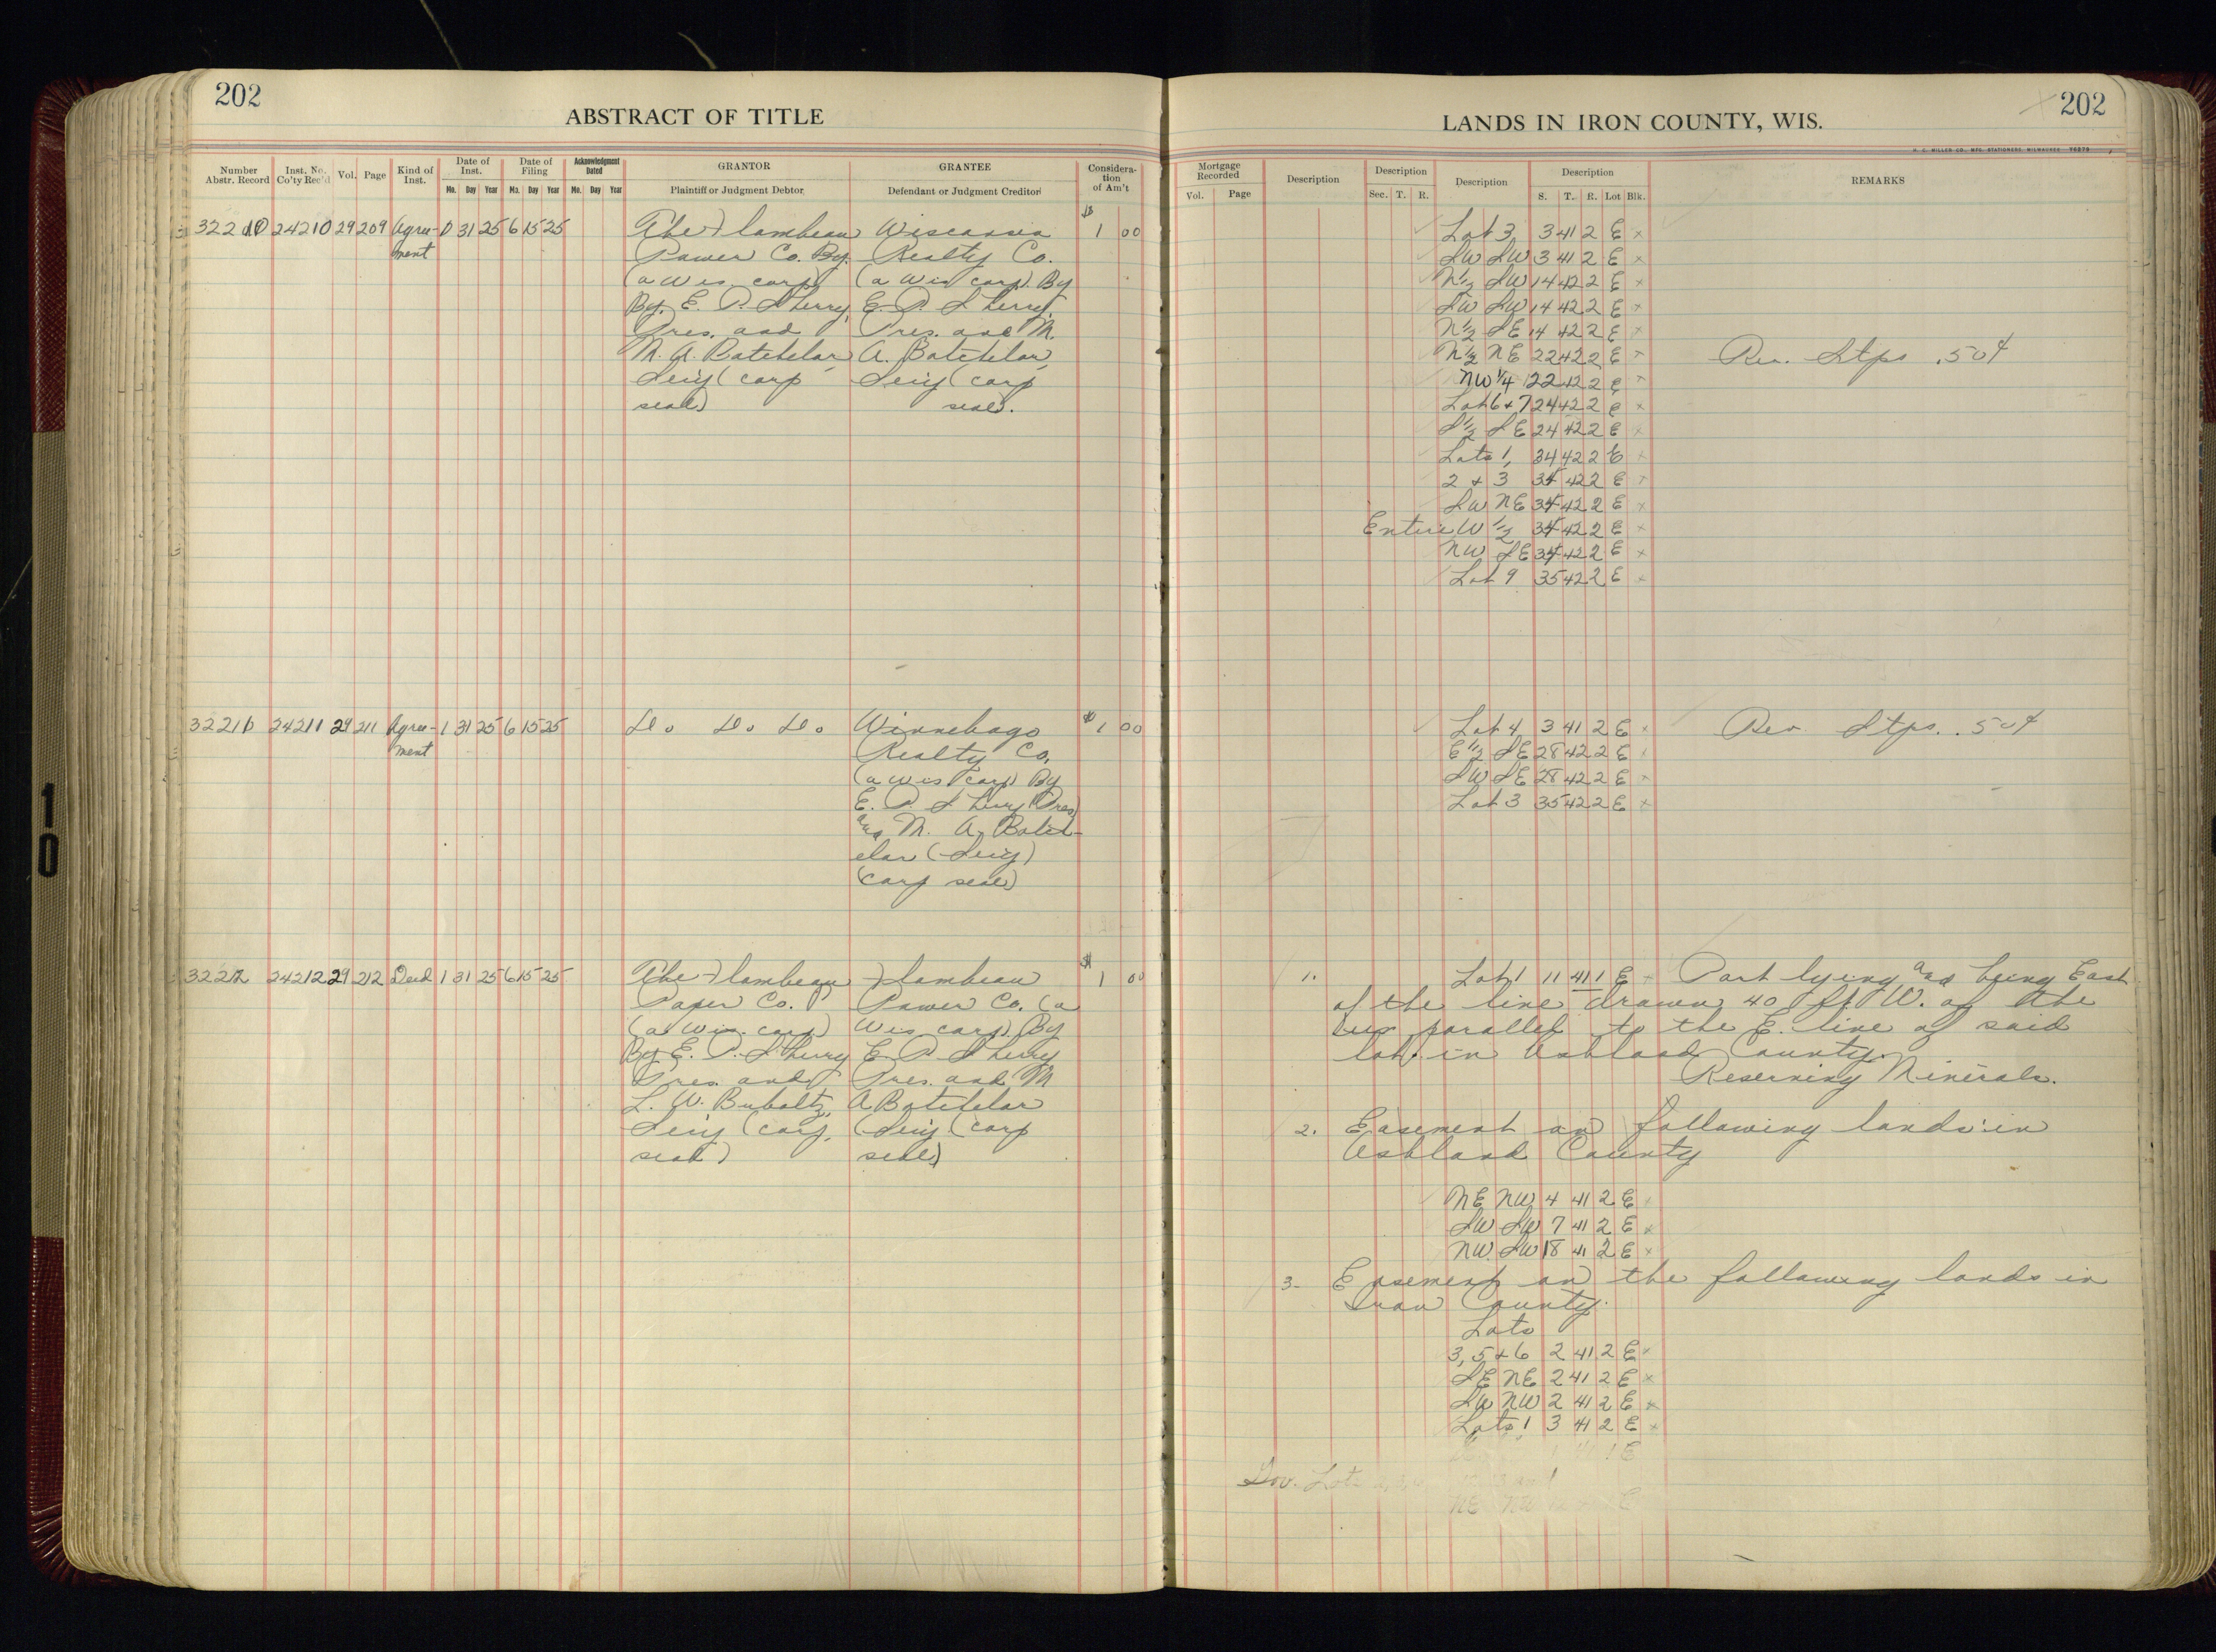 202
ABSTRACT OF TITLE
Number Abstr. Record
Inst. No. Co'ty Rec'd
Vol.
Page
Kind of Inst.
Date of Inst.
Mo. Day Year
Date of Filing
Mo. Day Year
Acknowledgment Dated
Mo. Day Year
GRANTOR
Plaintiff or Judgment Debtor
GRANTEE
Defendant or Judgment Creditor
Considera-
tion
of Am't
32210 24210 29 209 Agree- 1 31 25 6 15 25 The Flambeau Wisconsin $1 00
ment Power Co. By. Realty Co.
(a Wis corp) (a Wis corp) By
By. E. P. Sherry, E. P. Sherry,
Pres. and Pres. and M.
M. A. Batchelor, A. Batchelor,
Secy (corp Secy (corp
seal) seal).
32211 24211 29 211 Agree- 1 31 25 6 15 25 Do. Do. Do. Winnebago $1 00
ment Realty Co.
(a Wis corp) By
E. P. Sherry (Pres)
and M. A. Batch-
elor (Secy)
(corp seal)
32212 24212 29 212 Deed 1 31 25 6 15 25 The Flambeau Flambeau $1 00
Paper Co. Power Co. (a
(a Wis. corp) Wis corp) By
By E. P. Sherry E. P. Sherry
Pres. and Pres. and M
L. W. Buboltz, A Batchelor
Secy (corp. (Secy. (corp
seal) seal)
202
LANDS IN IRON COUNTY, WIS.
H. C. MILLER CO., MFG. STATIONERS, MILWAUKEE
Mortgage Recorded
Vol. Page
Description
Description
Sec. T. R.
Description
Description
S. T. R. Lot Blk.
REMARKS
Lot 3 3 41 2 E x
SW SW 3 41 2 E x
N½ SW 14 42 2 E x
SW SW 14 42 2 E x
N½ SE 14 42 2 E x
N½ NE 22 42 2 E x Rev. Stps .50¢
NW¼ 22 42 2 E x
Lot 6 + 7 24 42 2 E x
S½ SE 24 42 2 E x
Lots 1, 34 42 2 E x
2 + 3 34 42 2 E x
SW NE 34 42 2 E x
Entire W½ 34 42 2 E x
NW SE 34 42 2 E x
Lot 9 35 42 2 E x
Lot 4 3 41 2 E x Rev. Stps. .50¢
E½ SE 28 42 2 E x
SW SE 28 42 2 E x
Lot 3 35 42 2 E x
1. Lot 1 11 41 1 E x Part lying and being East
of the line drawn 40 ft W. of the
parallel to the E. line of said
lot in Ashland County.
Reserving Minerals.
2. Easement on following lands in
Ashland County
NE NW 4 41 2 E x
SW SW 7 41 2 E x
NW. SW 18 41 2 E x
3- Easement on the following lands in
Iron County.
Lots
3, 5 + 6 2 41 2 E x
SE NE 2 41 2 E x
SW NW 2 41 2 E x
Lots 1 3 41 2 E x
Gov. Lots
NE NW E